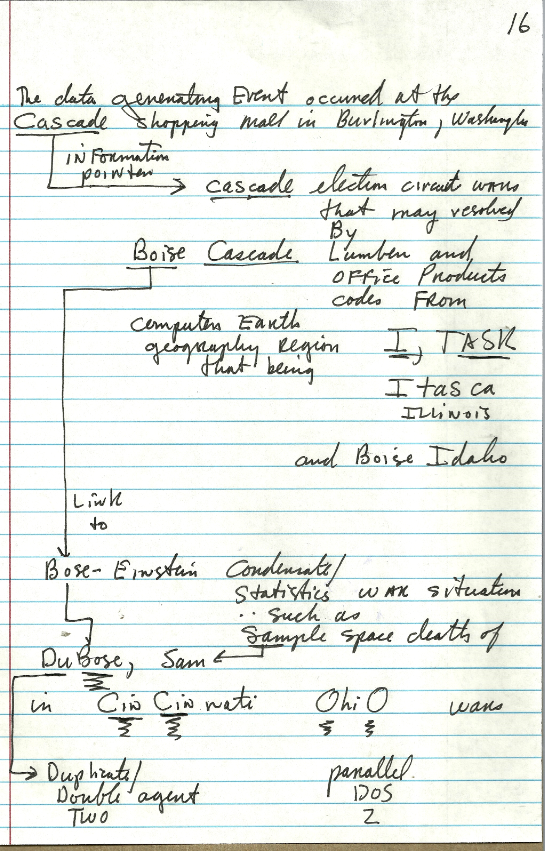 16
The data generating Event occurred at the
Cascade shopping mall in Burlington, Washington
INFormation
pointer
cascade election circuit wars
that may resolved
By
Boise Cascade Lumber and
OFFice Products
codes From
computer Earth
geography Region
that being
I, TASK
Itasca
ILLINOIS
and Boise Idaho
Link
to
Bose-Einstein Condensate/
Statistics WAR situation
.. such as
Sample space death of
DuBose, Sam
in CinCinnati OhiO wars
Duplicate/ parallel
Double agent DOS
TWO 2